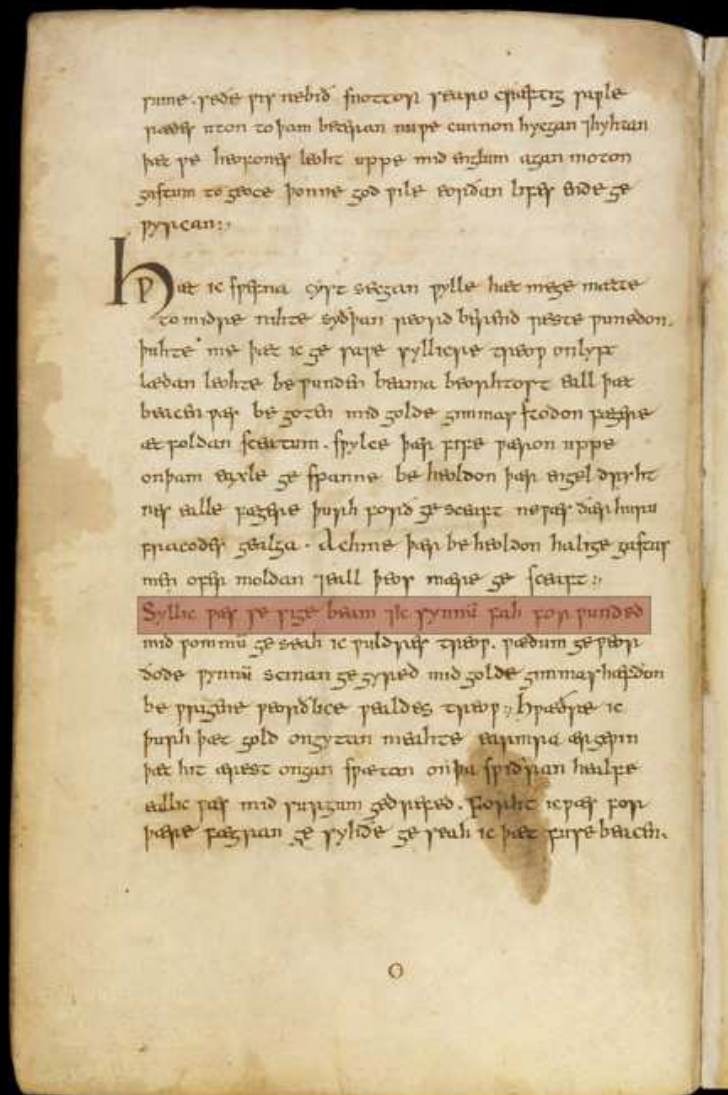 rume . rede ƿis nebið snottor searo cræftig saƿle
rædes uton toþam beteran nuƿe cunnon hycgan ⁊hyhtan
þæt ƿe heofones leoht uppe mid englum agan moton
gastum to geoce þonne god ƿile eorðan lifes ende ge
ƿyrcan:,
Hƿæt ic sƿefna cyst secgan ƿylle hæt mege mætte
to midre nihte syðþan reord berend reste ƿunedon.
þuhte me þæt ic ge saƿe syllicre treoƿ onlyft
lædan leohte be ƿunden beama beorhtost eall þæt
beacen ƿæs be goten mid golde gimmas stodon fægere
æt foldan sceatum . sƿylce þær fife ƿæron uppe
onþam eaxle ge spanne be heoldon þær engel dryht
nes ealle fægere þurh forð ge sceaft neƿæs ðær huru
fracodes gealga . Ac hine þær be heoldon halige gastas
men ofer moldan ⁊eall þeos mære ge sceaft :,
Syllic ƿæs se sige beam ⁊ic synnū fah for ƿunded
mid ƿommū ge seah ic ƿuldres treoƿ. ƿædum ge ƿeor
ðode ƿynnū scinan ge gyred mid golde gimmas hæfdon
be ƿrigene ƿeorðlice ƿealdes treoƿ:, Hƿæðre ic
þurh þæt gold ongytan meahte earmra ærgeƿin
þæt hit ærest ongan sƿætan onþa sƿiðran healfe
eallic ƿæs mid surgum gedrefed. Forht icƿæs for
þære fægran ge syhðe ge seah ic þæt fuse beacen.
O